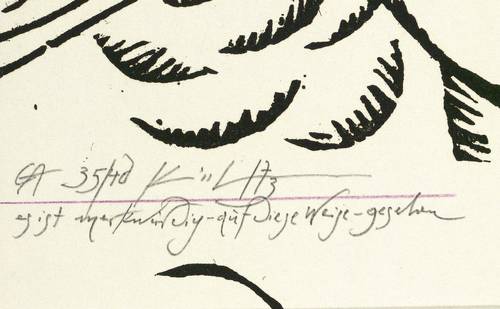 EA 35/40
es ist merkwürdig-auf diese Weise-gesehen